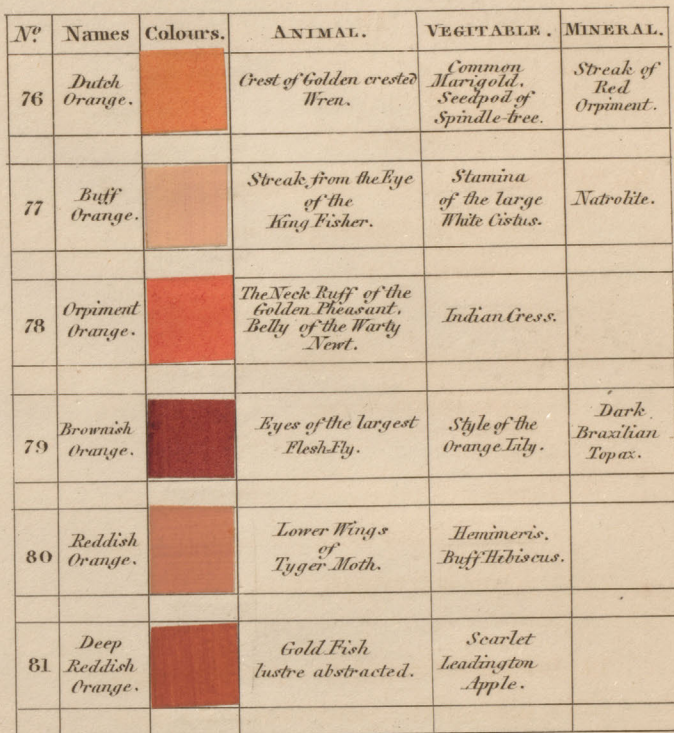 No. Names Colours. ANIMAL. VEGITABLE. MINERAL.
76
Dutch
Orange.
Crest of Golden crested
Wren.
Common
Marigold,
Seedpod of
Spindle-tree.
Streak of
Red
Orpiment.
77
Buff
Orange.
Streak from the Eye
of the
King Fisher.
Stamina
of the large
White Cistus.
Natrolite.
78
Orpiment
Orange.
The Neck Ruff of the
Golden Pheasant,
Belly of the Warty
Newt.
Indian Cress.
79
Brownish
Orange.
Eyes of the largest
Flesh Fly.
Style of the
Orange Lily.
Dark
Brazilian
Topaz.
80
Reddish
Orange.
Lower Wings
of
Tyger Moth.
Hemimeris.
Buff Hibiscus.
81
Deep
Reddish
Orange.
Gold Fish
lustre abstracted.
Scarlet
Leadington
Apple.